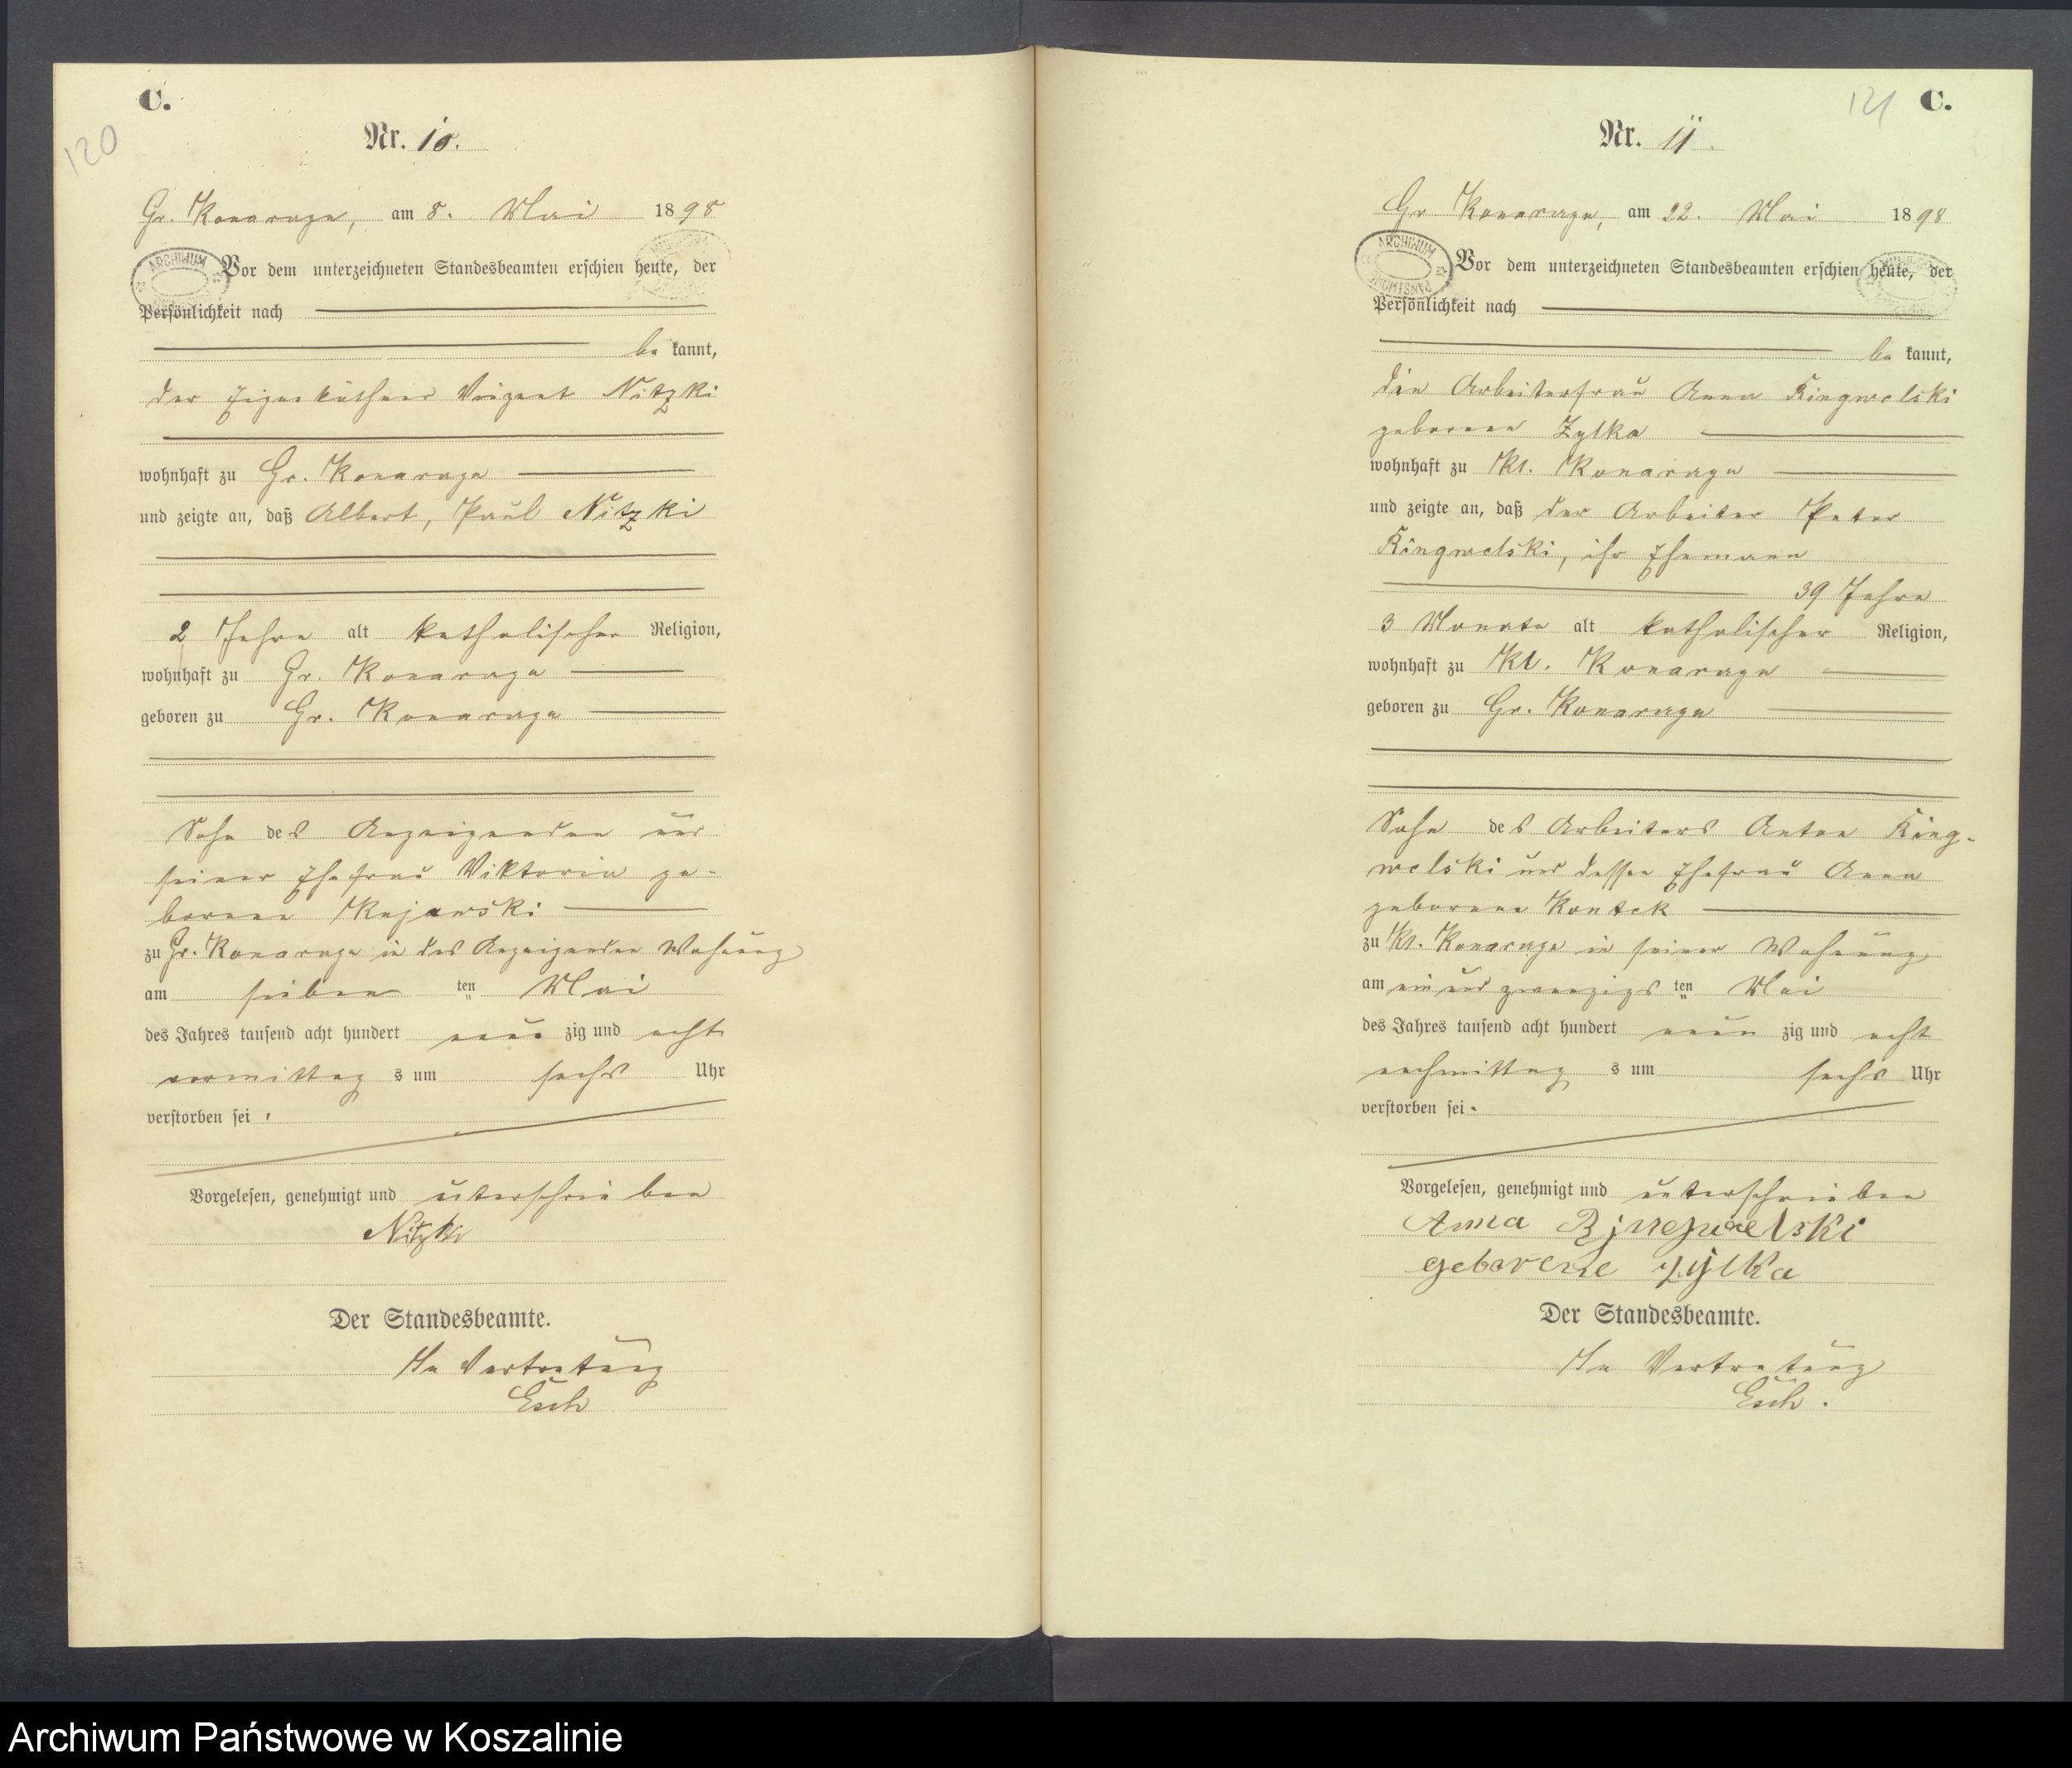 C.
120
Nr. 10.
Gr. Konarzyn, am 8. Mai 1898
Vor dem unterzeichneten Standesbeamten erschien heute, der
Persönlichkeit nach
be kannt,
der Eigenkäthner Vinzent Nitzki
wohnhaft zu Gr. Konarzyn
und zeigte an, daß Albert, Paul Nitzki
2 Jahre alt katholischer Religion,
wohnhaft zu Gr. Konarzyn
geboren zu Gr. Konarzyn
Sohn des Anzeigenden und
seiner Ehefrau Viktoria ge-
borene Kujawski
zu Gr. Konarzyn in des Anzeigenden Wohnung
am sieben ten Mai
des Jahres tausend acht hundert neun zig und acht
vormittag s um sechs Uhr
verstorben sei.
Vorgelesen, genehmigt und unterschrieben
Nitzki
Der Standesbeamte.
In Vertretung
Esch
121
C.
Nr. 11.
Gr Konarzyn, am 22. Mai 1898
ARCHIWUM
Vor dem unterzeichneten Standesbeamten erschien heute, der
Persönlichkeit nach
be kannt,
die Arbeiterfrau Anna
geborene Zylka
wohnhaft zu Kl. Konarzyn
und zeigte an, daß der Arbeiter Peter
ihr Ehemann
39 Jahre
3 Monate alt katholischer Religion,
wohnhaft zu Kl. Konarzyn
geboren zu Gr. Konarzyn
Sohn des Arbeiters Anton
und dessen Ehefrau Anna
geborene Kontek
zu Kl. Konarzyn in seiner Wohnung
am ein und zwanzigs ten Mai
des Jahres tausend acht hundert neun zig und acht
nachmittag s um sechs Uhr
verstorben sei.
Vorgelesen, genehmigt und unterschrieben
Anna
geborene Zylka
Der Standesbeamte.
In Vertretung
Esch.
Archiwum Państwowe w Koszalinie